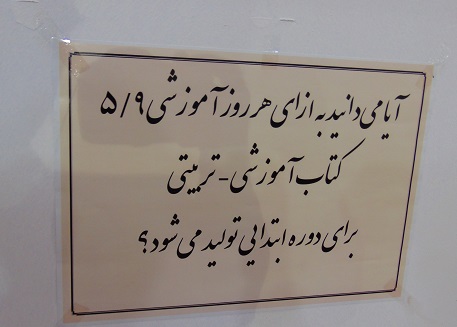 آیا می دانید به ازای هر روز آموزشی ۵/۹
کتاب آموزشی - تربیتی
برای دوره ابتدایی تولید می شود؟